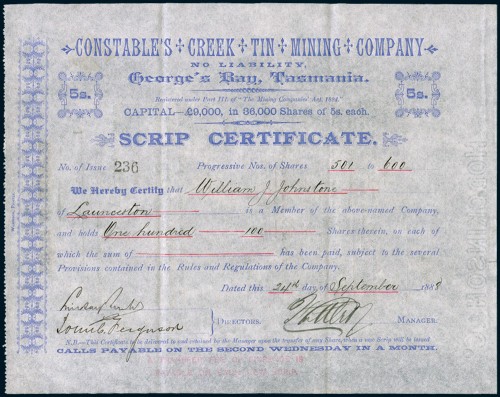 CONSTABLE'S CREEK TIN MINING COMPANY
NO LIABILITY,
George's Bay, Tasmania.
5s. 5s.
Registered under Part III. of "The Mining Companies' Act, 1884."
CAPITAL—£9,000, in 36,000 SHARES of 5s. each.
SCRIP CERTIFICATE.
No. of Issue 236 Progressive Nos. of Shares 501 to 600
We Hereby Certify that William J Johnstone
of Launceston is a Member of the above-named Company,
and holds One hundred 100 Shares therein, on each of
which the sum of has been paid, subject to the several
Provisions contained in the Rules and Regulations of the Company.
Dated this 24th day of September 1888
DIRECTORS. MANAGER.
Ferguson
N.B.—This Certificate to be delivered to and retained by the Manager upon the transfer of any Shares, when a new Scrip will be issued.
CALLS PAYABLE ON THE SECOND WEDNESDAY IN A MONTH.